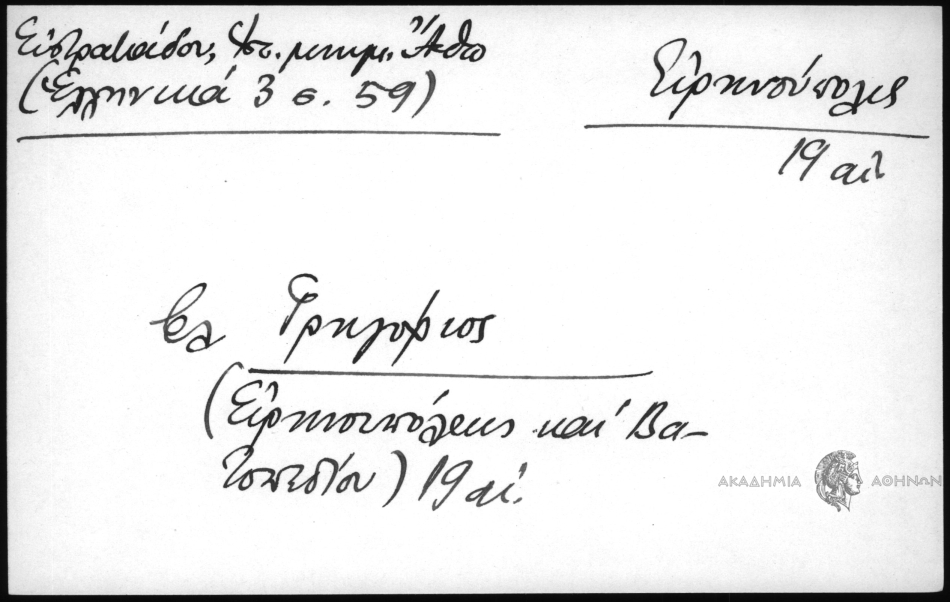 Εὐστρατιάδου, Ἱστ. μνημ. Ἄθω
(Ἑλληνικά 3 σ. 59)
Εἰρηνούπολις
19 αἰ.
βλ Γρηγόριος
(Εἰρηνουπόλεως καί Βα-
τοπεδίου) 19 αἰ.
ΑΚΑΔΗΜΙΑ ΑΘΗΝΩΝ